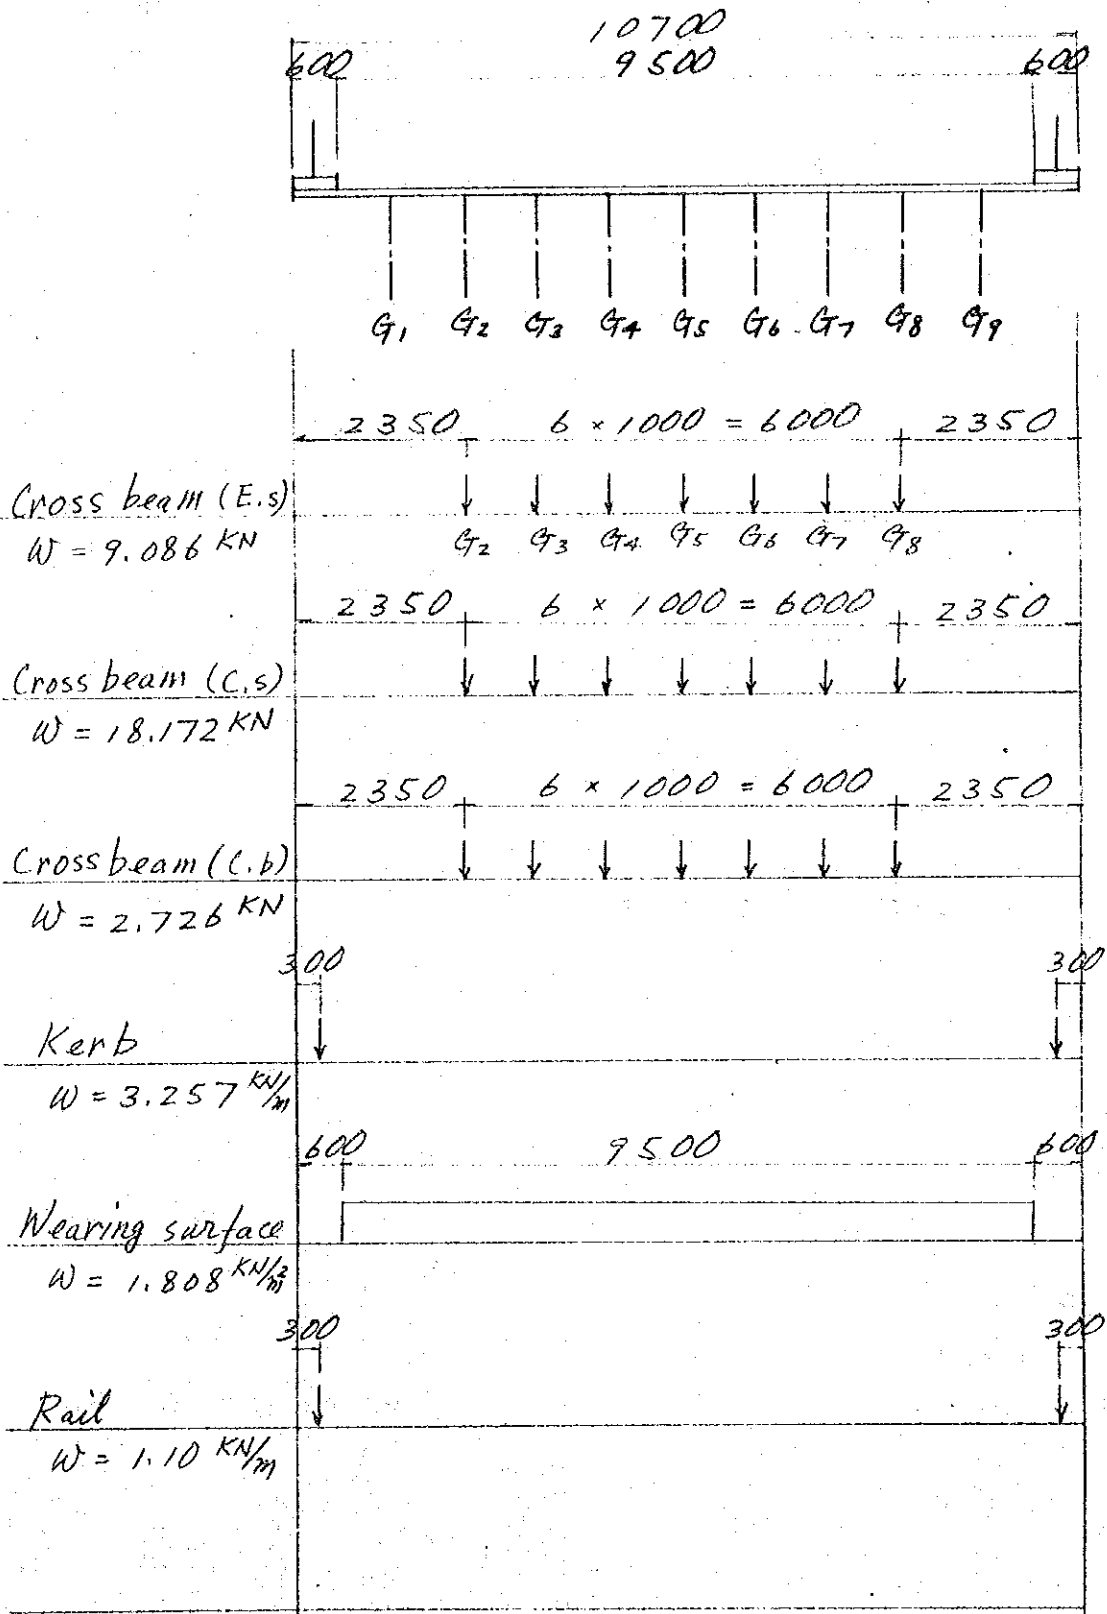 10700
600 9500 600
G1 G2 G3 G4 G5 G6 G7 G8 G9
2350 6 × 1000 = 6000 2350
Cross beam (E.s)
W = 9.086 KN
G2 G3 G4 G5 G6 G7 G8
2350 6 × 1000 = 6000 2350
Cross beam (C.s)
W = 18.172 KN
2350 6 × 1000 = 6000 2350
Cross beam (C.b)
W = 2.726 KN
300 300
Kerb
W = 3.257 KN/m
600 9500 600
Wearing surface
W = 1.808 KN/m²
300 300
Rail
W = 1.10 KN/m